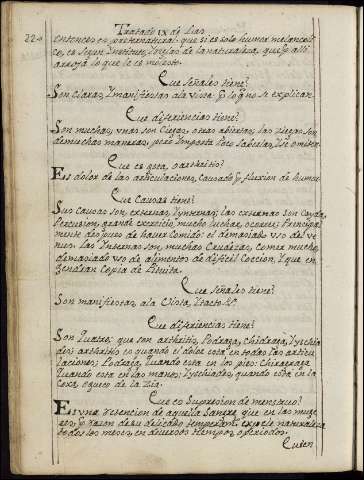 224
Tratado IX de Lias
entonces es prethenatural. que si es solo humor melancoli-
co, es segun Instituto, y reglas de la naturaleza, que p alli
arroja lo que la es molesto.
Que señales tiene?
Son claras, y manifiestas ala vista p lo q no se explican.
Que diferiencias tiene?
Son muchas, unas son ciegas, otras abiertas, las ciegas son
demuchas maneras, pero Importa poco saverlas, y se omiten
Que es gota, o arthritis?
Es dolor de las articulaciones, causado p fluxion de humor
Que Causas tiene?
Sus causas son externas, y ynternas; las externas son Cayda,
Percusion, grande exercicio, mucho luchar, ocorrer; Principal-
mente despues de haver Comido: el demasiado uso del ve-
nus. las Internas son, muchas Crudezas, Comer mucho,
demasiado uso de alimentos de dificil Coccion, y que en
gendran Copia de Pituita.
Que señales tiene?
Son manifiestas, ala Vista, y tacto &c
Que diferiencias tiene?
Son Quatro; que son arthritis, Podraga, Chidraga, Yschia
des; arthritis es quando el dolor esta en todas las articu
laciones; Podraga quando esta en los pies: Chiraeraga
Quando esta en las manos; Yschiades, quando esta en la
Coxa, o gueso de la Zia.
Que es Supresion de menstruo?
Es una retencion de aquella Sangre que en las muge
res, p razon de su delicado temperamt expele naturaleza
todos los meses, en diversos tiempos, o periodos.
Cuten